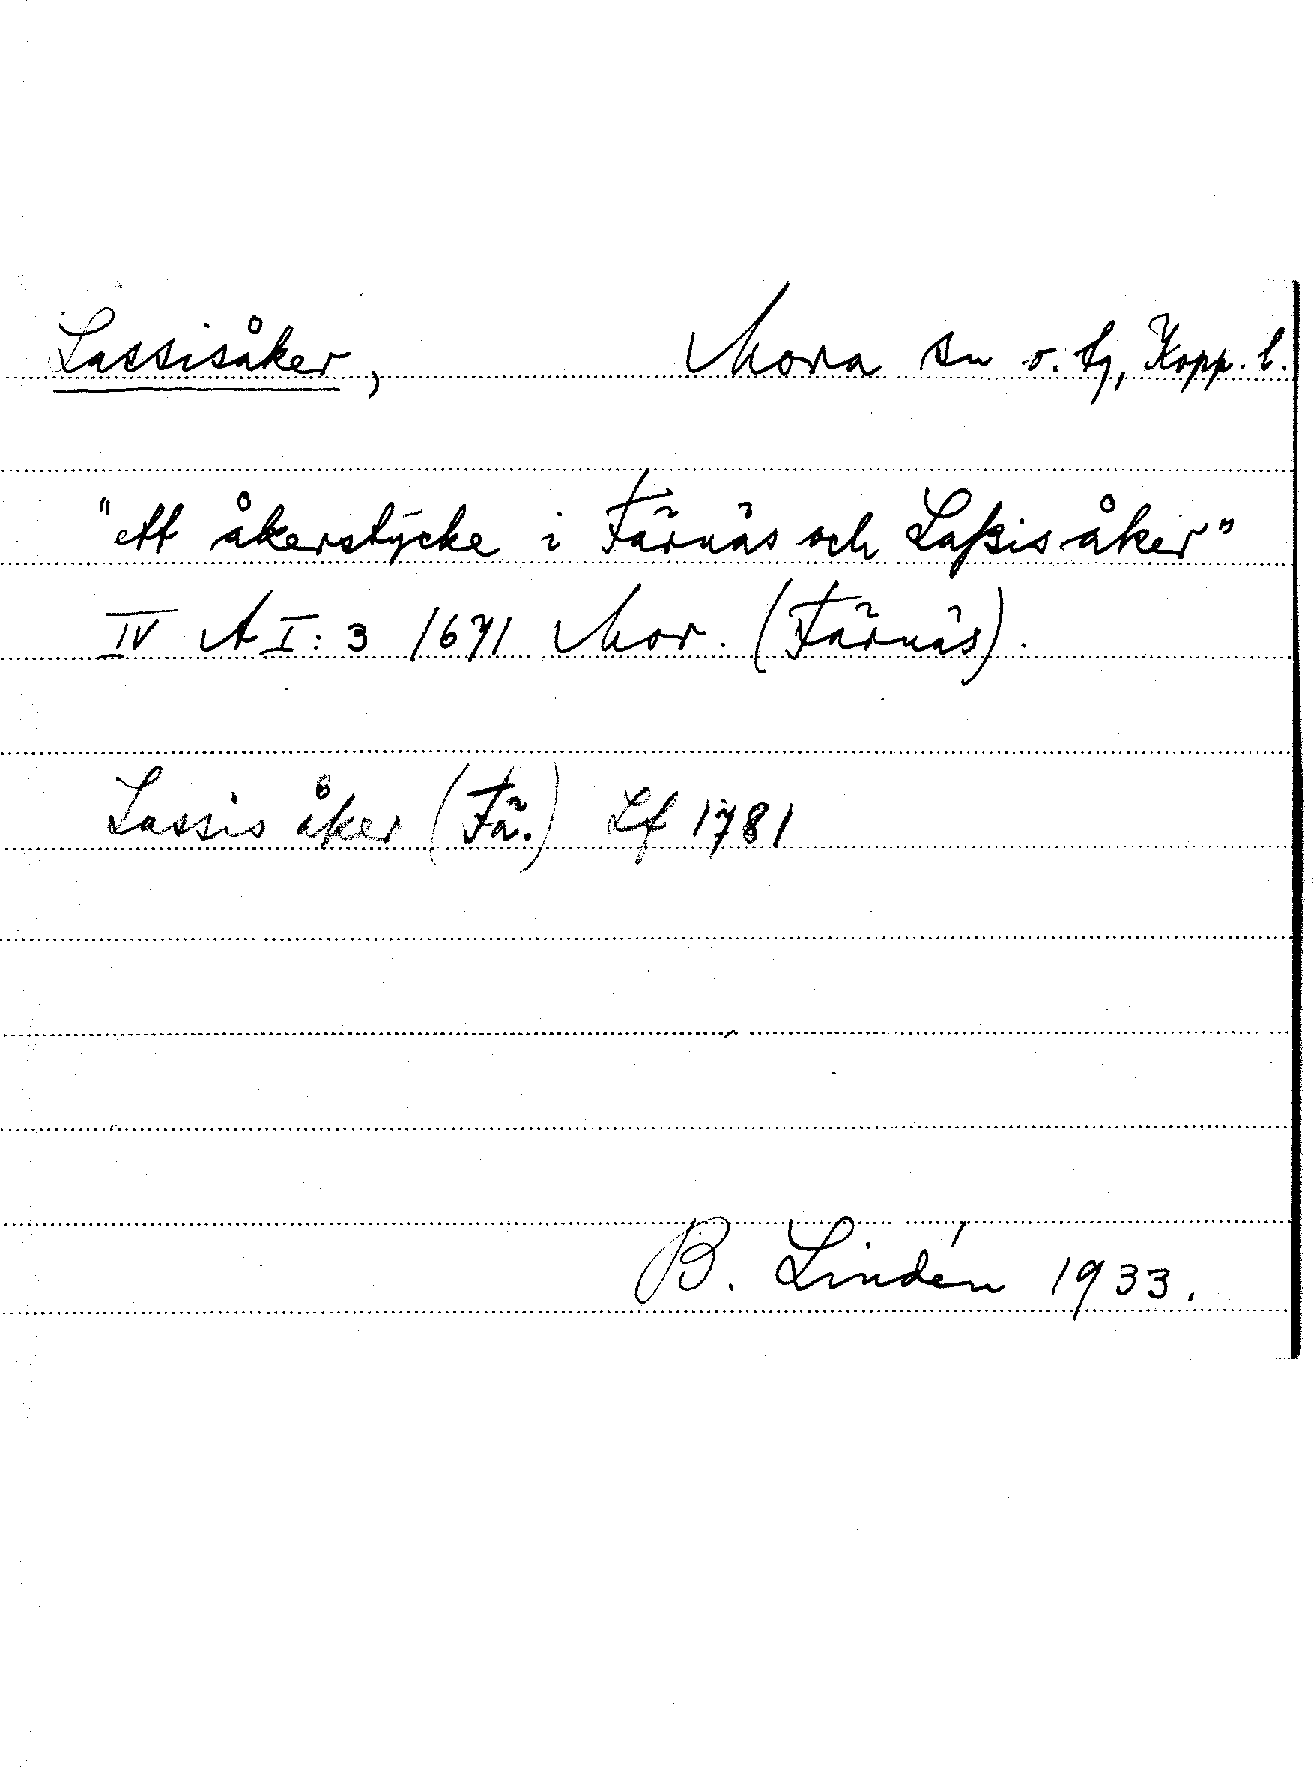 Lassisåker, Mora sn o. tg, Kopp. l.
"ett åkerstycke i Färnäs och Laßis åker"
IV A I: 3 1671 Mor. (Färnäs).
Lassis åker (Fä.) Lf 1781
B. Lindén 1933.